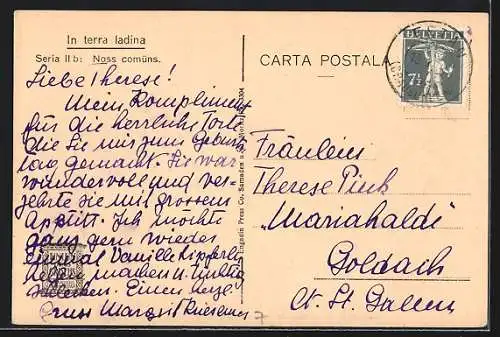 In terra ladina
Seria II b: Noss comüns.
CARTA POSTALA
HELVETIA
7½
Liebe Therese!
Mein Kompliment
für die herrliche Torte
die Sie mir zum Geburts
tag gemacht. Sie war
wundervoll und ver-
zehrte sie mit grossem
Appetit. Ich möchte
ganz gern wieder
einmal Vanille Kipferln
machen u.
Einen
Gruss Margrit
Engadin Press Co. Samaden
Fräulein
Therese Pink
"Mariahalde"
Goldach
Ct. St. Gallen
7